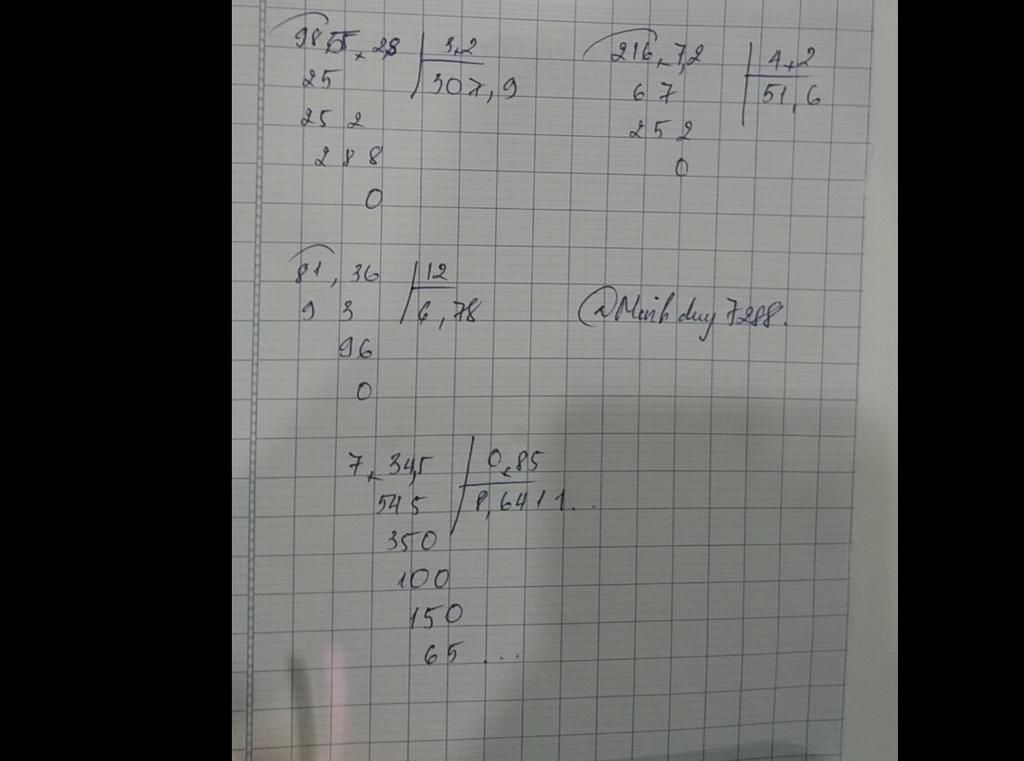 985,28 3,2
25 307,9
252
288
0
216,7,2 4,2
67 51,6
252
0
81,36 12
93 6,78
96
0
@Minh duy 7288.
7,34,5 0,85
545 8,6411...
350
100
150
65 ...